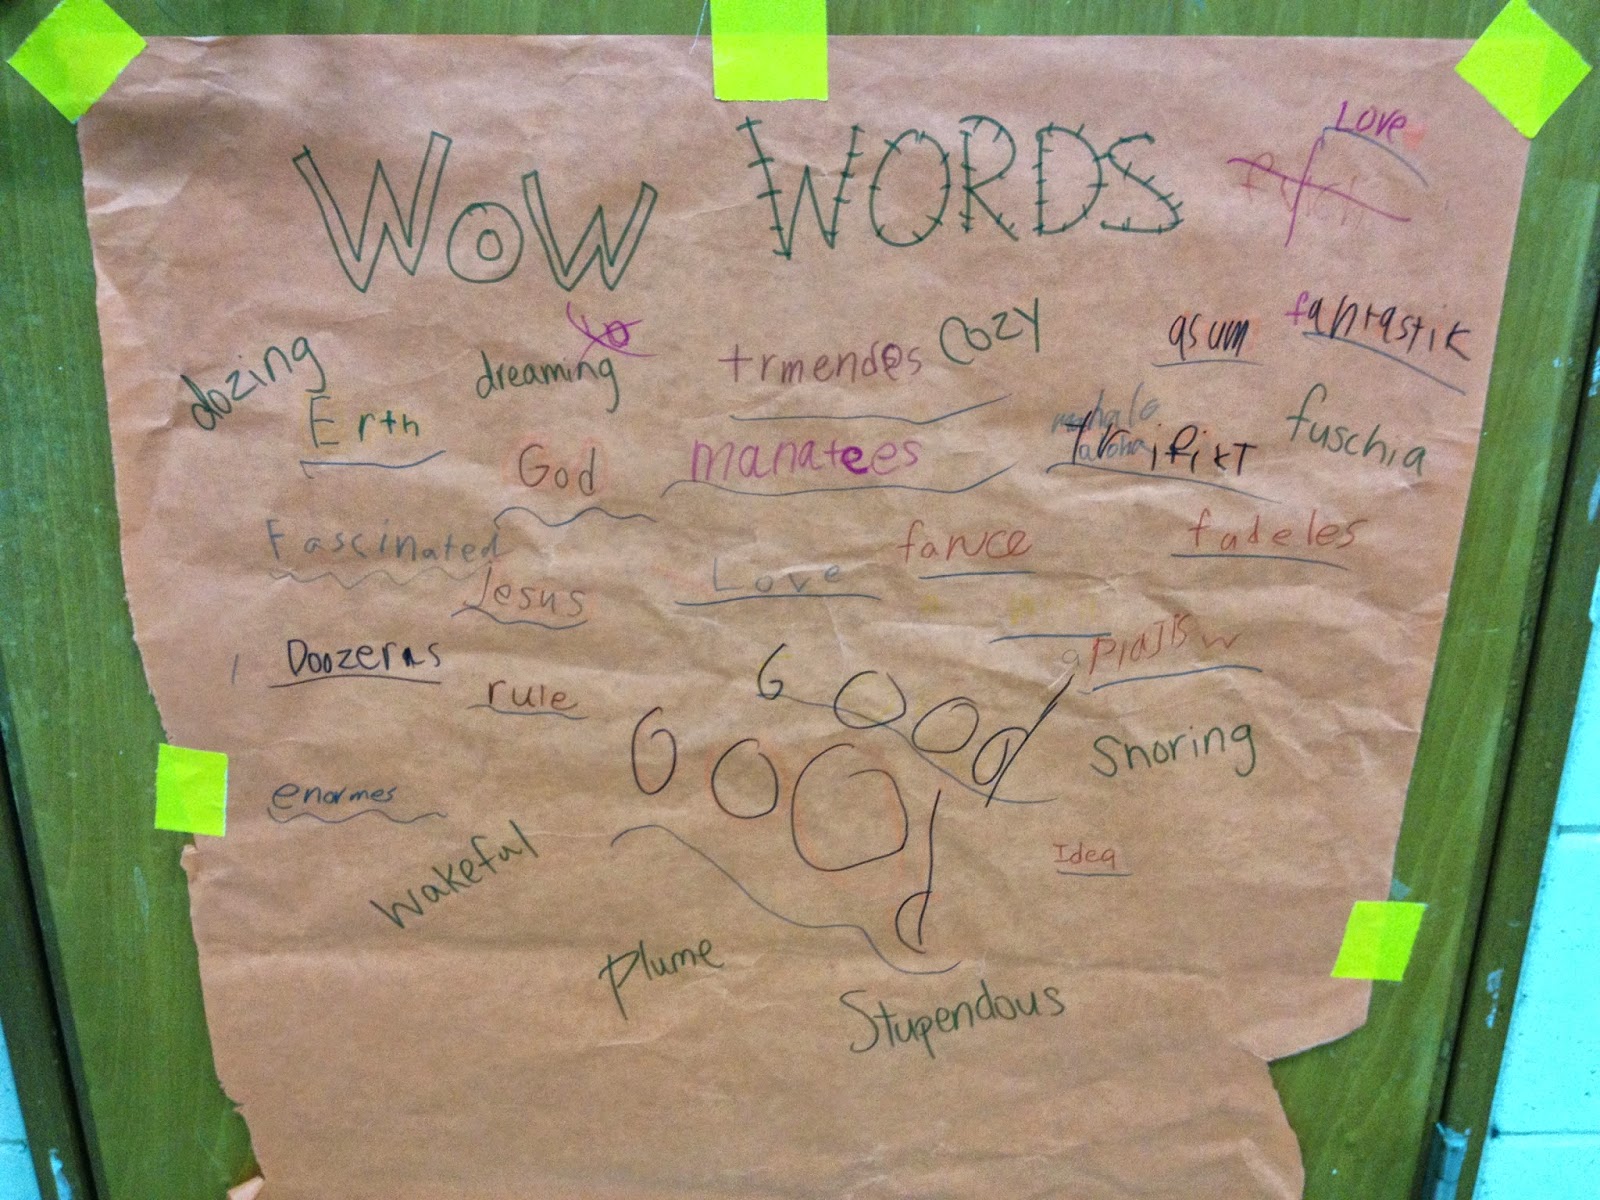 WOW WORDS
Love
dozing
dreaming
trmendes
Cozy
asum
fantastik
Erth
God
manatees
mahalo
fuschia
Fascinated
Jesus
Love
fance
fadeles
Doozeras
rule
Good
Goood
Snoring
enormes
wakeful
Idea
plume
Stupendous